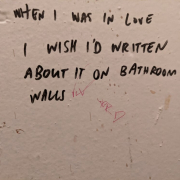 WHEN I WAS IN LOVE
I WISH I'D WRITTEN
ABOUT IT ON BATHROOM
WALLS